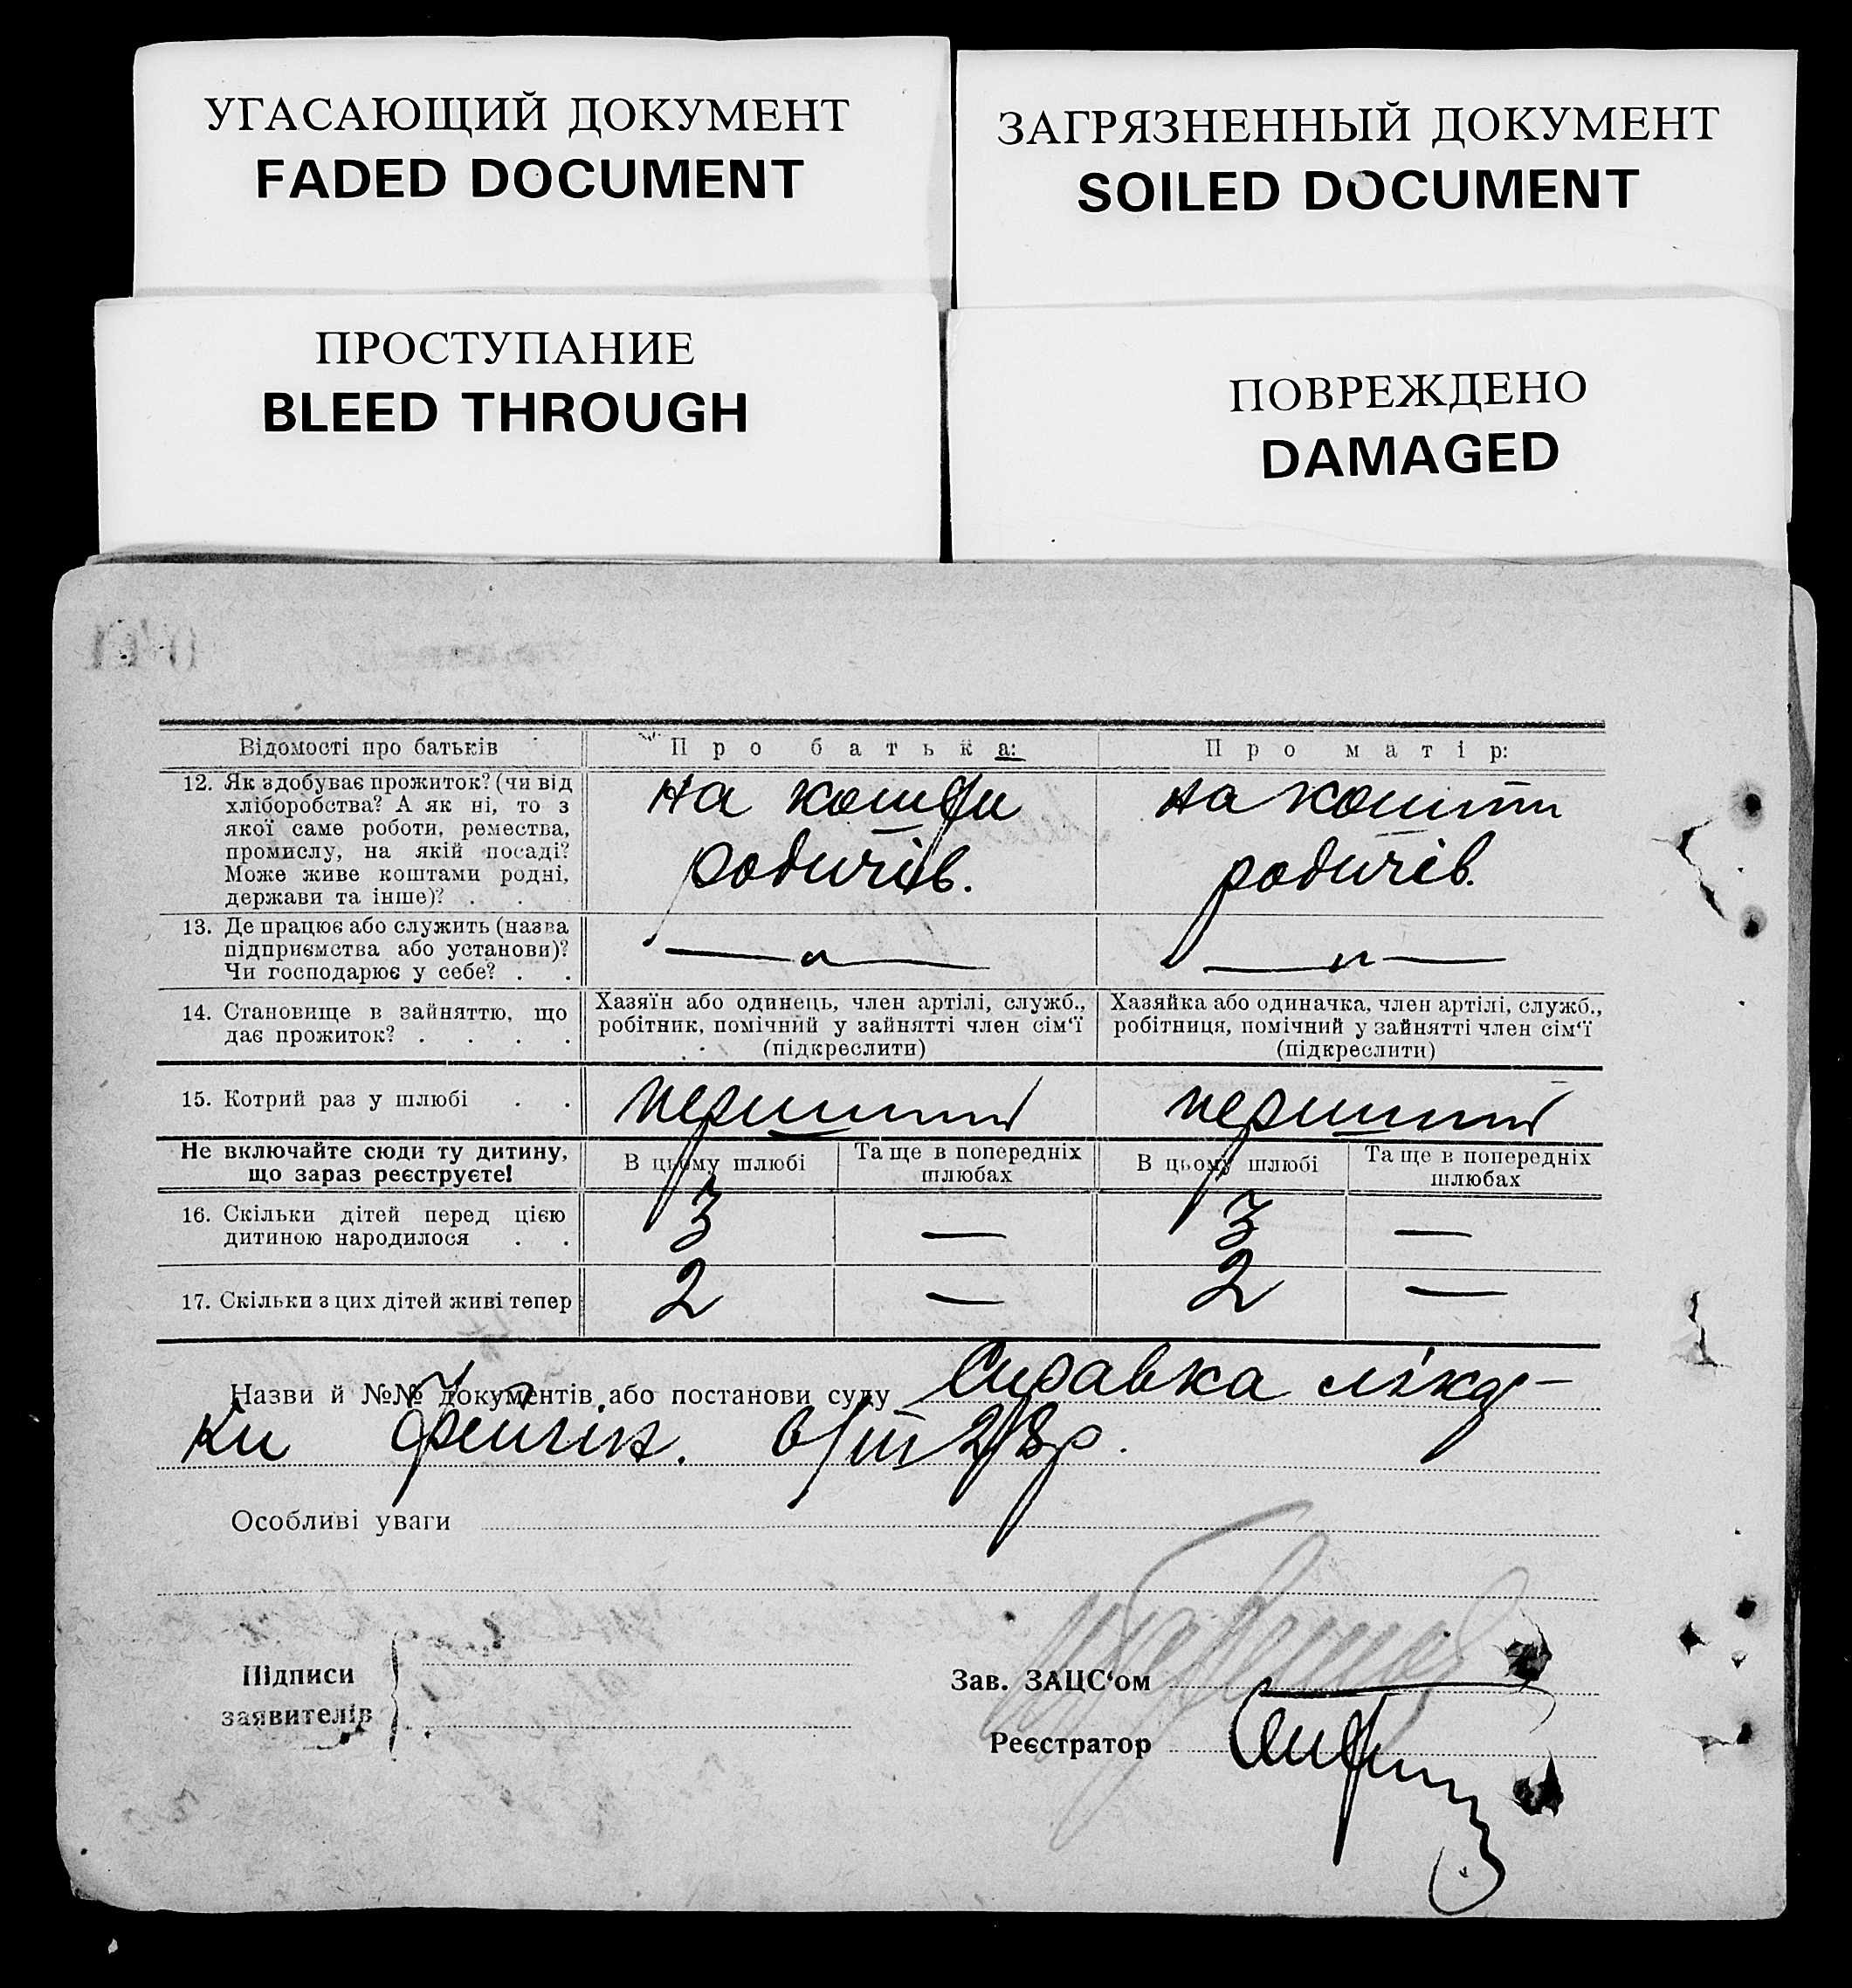 УГАСАЮЩИЙ ДОКУМЕНТ
FADED DOCUMENT
ЗАГРЯЗНЕННЫЙ ДОКУМЕНТ
SOILED DOCUMENT
ПРОСТУПАНИЕ
BLEED THROUGH
ПОВРЕЖДЕНО
DAMAGED
Відомості про батьків
Про батька:
Про матір:
12. Як здобуває прожиток? (чи від
хліборобства? А як ні, то з
якої саме роботи, ремества,
промислу, на якій посаді?
Може живе коштами родні,
держави та інше)? . .
на кошти
родичів.
на кошти
родичів.
13. Де працює або служить (назва
підприємства або установи)?
Чи господарює у себе? . .
— „ —
— „ —
14. Становище в зайняттю, що
дає прожиток? . . . .
Хазяїн або одинець, член артілі, служб.,
робітник, помічний у зайнятті член сім'ї
(підкреслити)
Хазяйка або одиначка, член артілі, служб.,
робітниця, помічний у зайнятті член сім'ї
(підкреслити)
15. Котрий раз у шлюбі . .
перший
перший
Не включайте сюди ту дитину,
що зараз реєструєте!
В цьому шлюбі
Та ще в попередніх
шлюбах
В цьому шлюбі
Та ще в попередніх
шлюбах
16. Скільки дітей перед цією
дитиною народилося . .
3 — 3 —
17. Скільки з цих дітей живі тепер
2 — 2 —
Назви й №№ документів або постанови суду Справка лікар-
ки 6/III 28р.
Особливі уваги
Підписи
заявителів
Зав. ЗАЦС'ом
Реєстратор